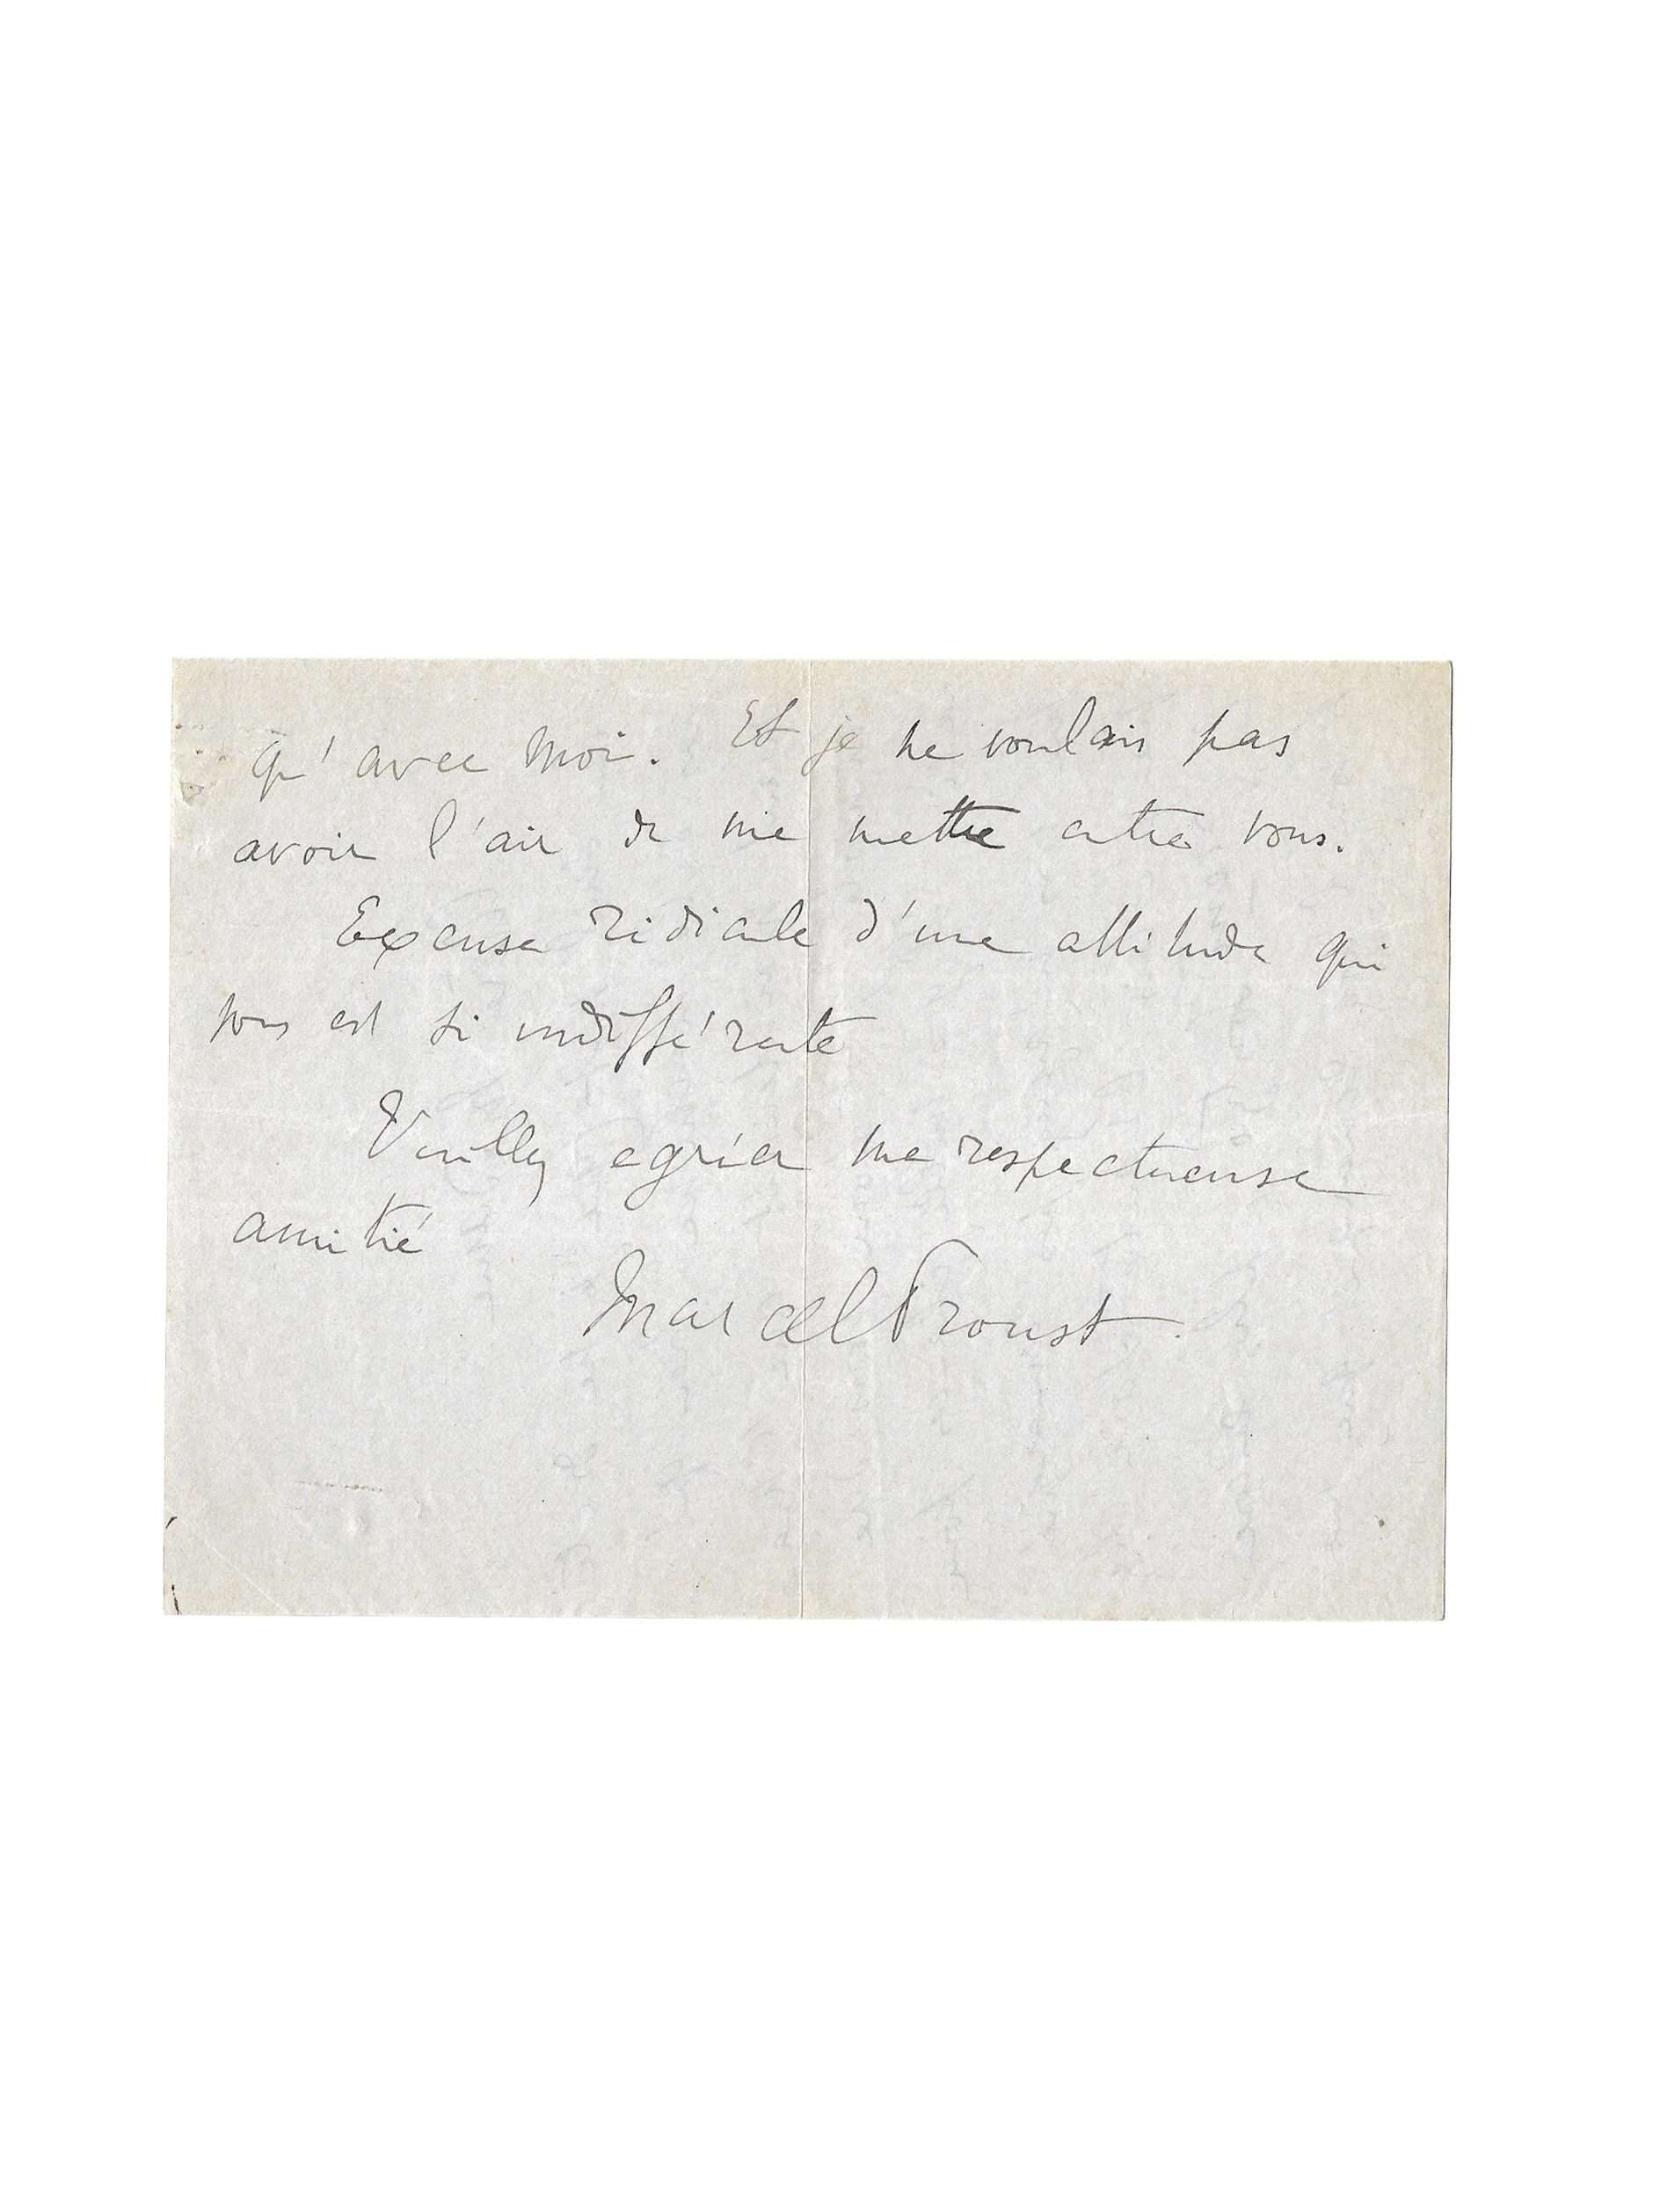 qu'avec moi. Et je ne voulais pas
avoir l'air de me mettre entre vous.
Excuse ridicule d'une attitude qui
vous est si indifférente
Veuillez agréer ma respectueuse
amitié
Marcel Proust